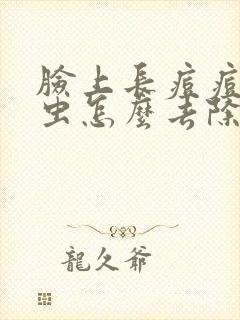 臉上長痘痘
虫怎麼去除
龍久爺